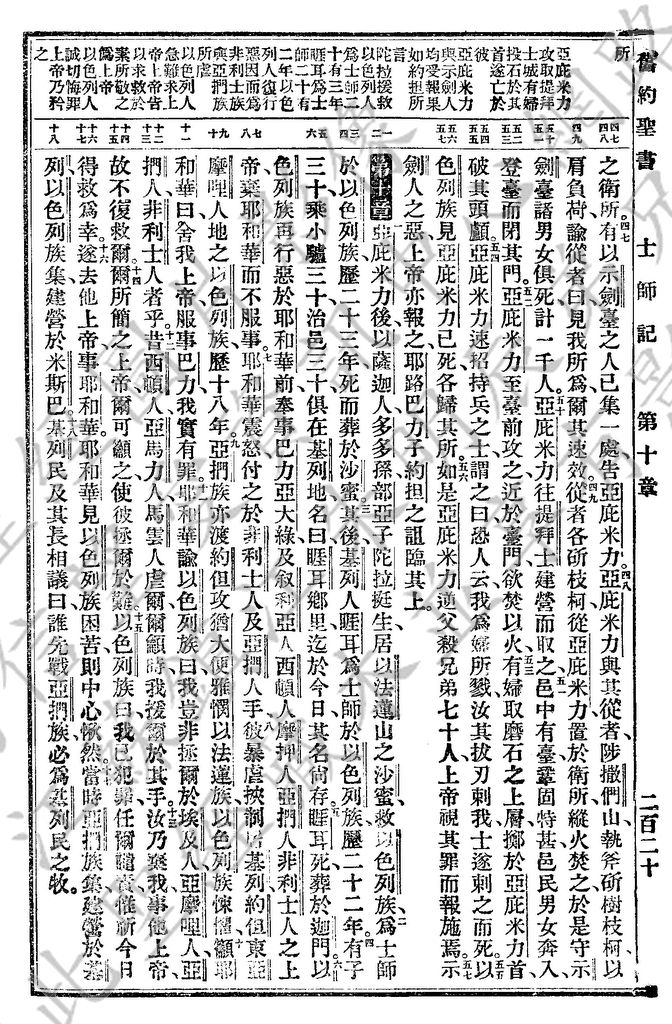 舊約聖書 士師記 第十章 二百二十
所
亞庇米力
攻取提拜
士城有婦
投石於其
首遂亡於
彼
亞庇米力
與示劍人
均受報果
如約担所
言
陀拉援救
以色列人
為士師二
十有三年
睚耳為士
師二十有
二年以色
列人復行
惡因而為
非利士族
與亞捫族
所虐
以色列人
急難求上
帝上帝告
以求救於
素所敬之
偽上帝
以色列人
誠切悔罪
上帝乃矜
之
之衛所有以示劍臺之人已集一處告亞庇米力亞庇米力與其從者陟撒們山執斧斫樹枝柯以
肩負荷諭從者曰見我所為爾其速效從者各斫枝柯從亞庇米力置於衛所縱火焚之於是守示
劍臺諸男女俱死計一千人亞庇米力往提拜士建營而取之邑中有臺鞏固特甚邑民男女奔入
登臺而閉其門亞庇米力至臺前攻之近於臺門欲焚以火有婦取磨石之上層擲於亞庇米力首
破其頭顱亞庇米力速招持兵之士謂之曰恐人云我為婦所戮汝其拔刃刺我士遂刺之而死以
色列族見亞庇米力已死各歸其所如是亞庇米力逆父殺兄弟七十人上帝視其罪而報施焉示
劍人之惡上帝亦報之耶路巴力子約担之詛臨其上
第十章 亞庇米力後以薩迦人多多孫部亞子陀拉挺生居以法蓮山之沙蜜救以色列族為士師
於以色列族歷二十三年死而葬於沙蜜其後基列人睚耳為士師於以色列族歷二十二年有子
三十乘小驢三十治邑三十俱在基列地名曰睚耳鄉里迄於今日其名尚存睚耳死葬於迦門以
色列族再行惡於耶和華前奉事巴力亞大綠及叙利亞人西頓人摩押人亞捫人非利士人之上
帝棄耶和華而不服事耶和華震怒付之於非利士人及亞捫人手彼暴虐挾制居基列約但東亞
摩哩人地之以色列族歷十八年亞捫族亦渡約但攻猶大便雅憫以法蓮族以色列族悚懼籲耶
和華曰舍我上帝服事巴力我實有罪耶和華諭以色列族曰我豈非拯爾於埃及人亞摩哩人亞
捫人非利士人者乎昔西頓人亞馬力人馬雲人虐爾爾籲時我援爾於其手汝乃棄我事他上帝
故不復救爾爾所簡之上帝爾可籲之使彼拯爾於難以色列族曰我已犯罪任爾譴責惟祈今日
得救為幸遂去他上帝事耶和華耶和華見以色列族困苦則中心愀然當時亞捫族集建營於基
列以色列族集建營於米斯巴基列民及其長相議曰誰先戰亞捫族必為基列民之牧